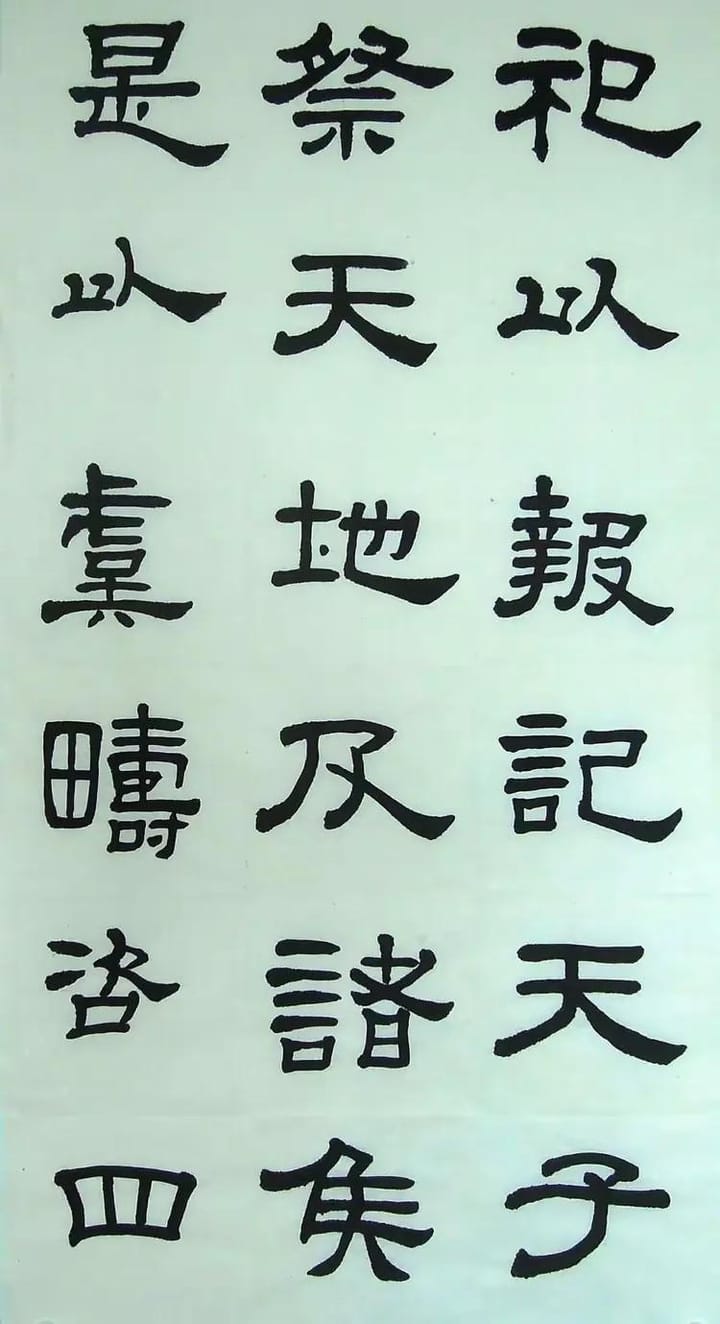 祀以報記天子
祭天地及諸侯
是以虞疇咨四